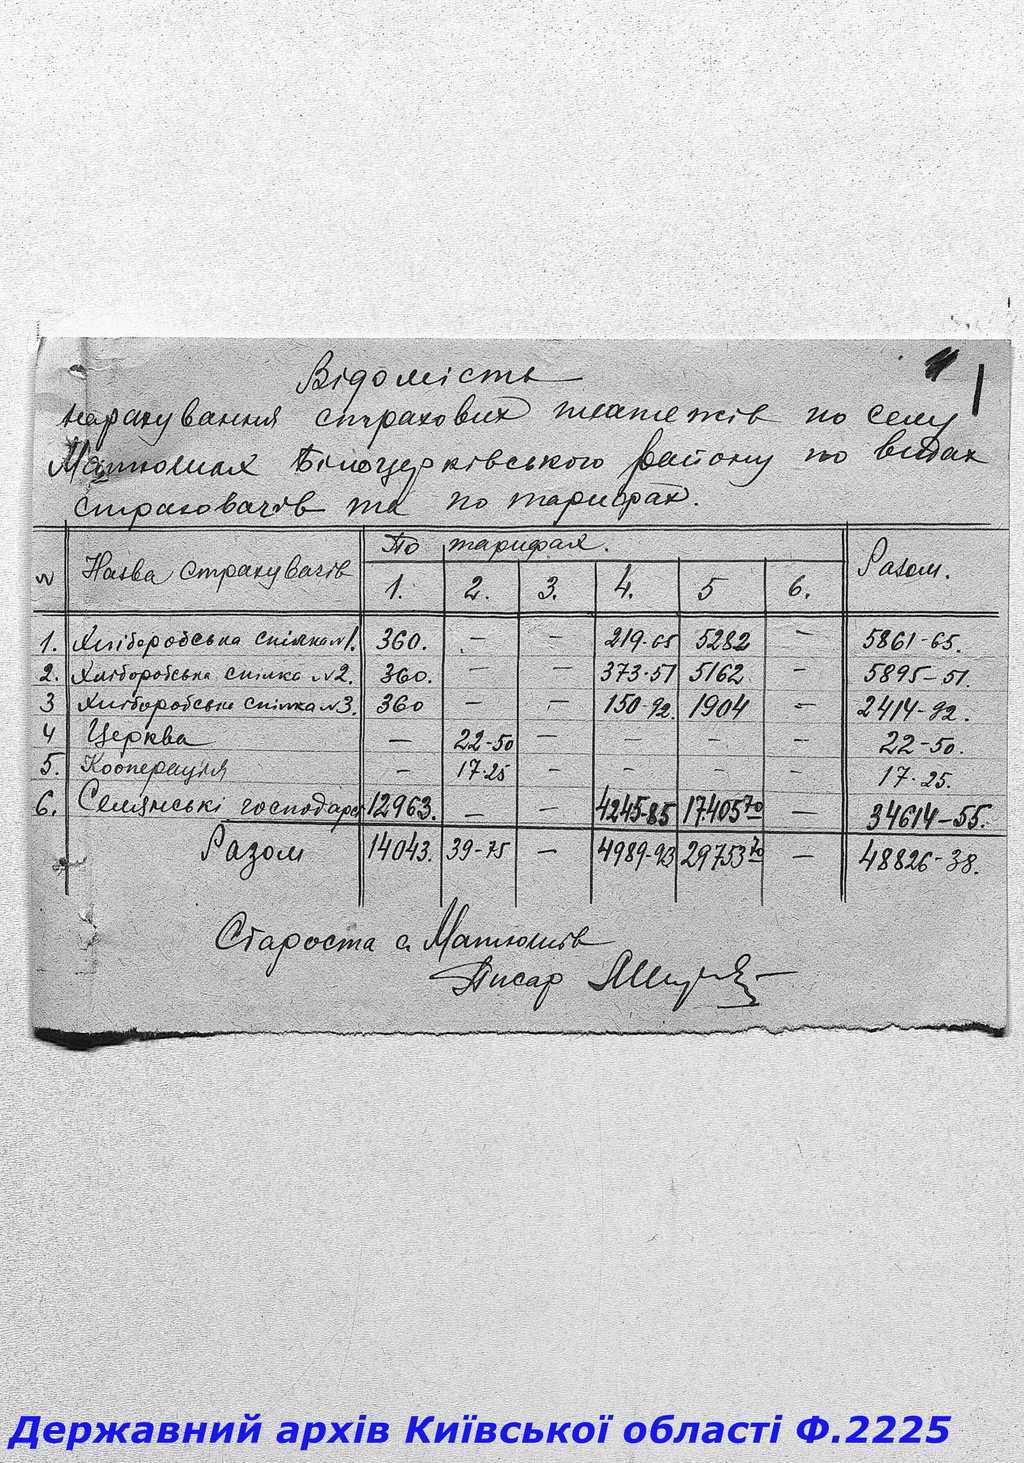 Відомість
нарахування страхових платежів по селу
Матюшах Білоцерківського району по видах
страховачів та по тарифах.
№ Назва страхувачів По тарифах. Разом.
1. 2. 3. 4. 5 6.
1. Хліборобська спілка №1. 360. — — 219-65 5282 — 5861-65.
2. Хліборобська спілка №2. 360. — — 373-51 5162 — 5895-51.
3 Хліборобська спілка №3. 360 — — 150-92. 1904 — 2414-92.
4 Церква — 22-50 — — — — 22-50.
5. Кооперація — 17-25 — — — — 17-25.
6. Селянські господарст 12963. — — 4245-85 17405 70 — 34614-55.
Разом 14043. 39-75 — 4989-93 29753 70 — 48826-38.
Староста с. Матюшів
Писар
Державний архів Київської області Ф.2225